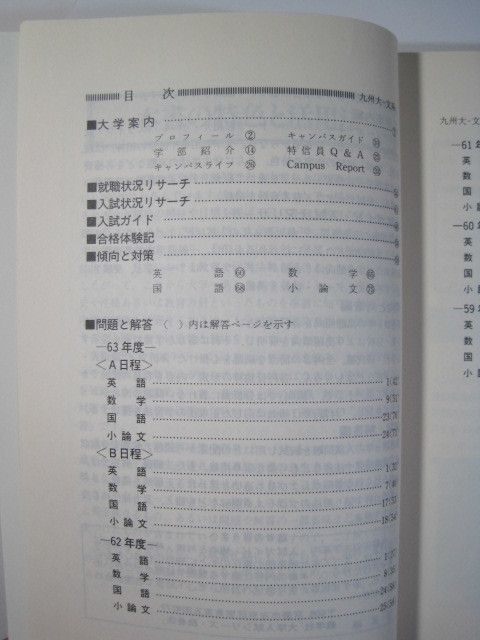 目次
九州大-文系
■大学案内
プロフィール ② キャンパスガイド
学部紹介 ⑭ 特信員Q&A
キャンパスライフ ㉖ Campus Report
■就職状況リサーチ
■入試状況リサーチ
■入試ガイド
■合格体験記
■傾向と対策
英語 60 数学
国語 68 小論文
■問題と解答 ( )内は解答ページを示す
―63年度―
<A日程>
英語 1/42
数学
国語
小論文
<B日程>
英語
数学
国語
小論文
―62年度―
英語
数学
国語
小論文
九州大-文
―61年
英
数
国
小
―60年
英
数
国
小
―59年
英
数
国
小